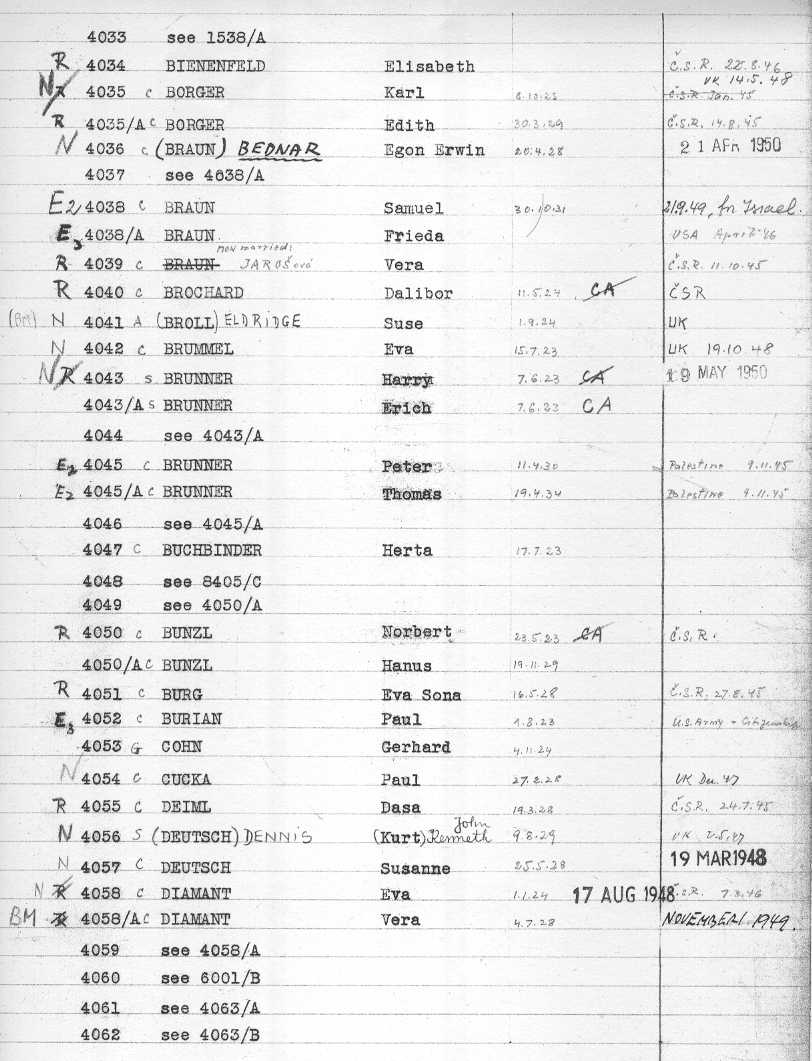 4033 see 1538/A
R 4034 BIENENFELD Elisabeth Č.S.R. 22.8.46
UK 14.5.48
N R 4035 C BORGER Karl Č.S.R. Jan. 45
R 4035/A C BORGER Edith 30.3.29 Č.S.R. 14.8.45
N 4036 C (BRAUN) BEDNAR Egon Erwin 20.4.28 21 APR 1950
4037 see 4038/A
E2 4038 C BRAUN Samuel 30.10.31 21.9.49, for Israel.
E3 4038/A BRAUN Frieda USA April 46
now married:
R 4039 C BRAUN JAROŠová Vera Č.S.R. 11.10.45
R 4040 C BROCHARD Dalibor 11.5.24 CA ČSR
(BM) N 4041 A (BROLL) ELDRIDGE Suse 1.9.24 UK
N 4042 C BRUMMEL Eva 15.7.23 UK 19.10 48
N R 4043 S BRUNNER Harry 7.6.23 CA 19 MAY 1950
4043/A S BRUNNER Erich 7.6.23 CA
4044 see 4043/A
E2 4045 C BRUNNER Peter 11.4.30 Palestine 9.11.45
E2 4045/A C BRUNNER Thomas 19.4.34 Palestine 9.11.45
4046 see 4045/A
4047 C BUCHBINDER Herta 17.7.23
4048 see 8405/C
4049 see 4050/A
R 4050 C BUNZL Norbert 23.5.23 CA Č.S.R.
4050/A C BUNZL Hanus 19.11.29
R 4051 C BURG Eva Sona 16.5.28 Č.S.R. 27.8.45
E3 4052 C BURIAN Paul 1.8.23 U.S. Army - Citizenship
4053 G COHN Gerhard 4.11.24
N 4054 C CUCKA Paul 27.2.28 UK Dec. 47
R 4055 C DEIML Dasa 19.3.28 Č.S.R. 24.7.45
John
N 4056 S (DEUTSCH) DENNIS (Kurt) Kenneth 9.8.29 UK
N 4057 C DEUTSCH Susanne 25.5.28 19 MAR 1948
N R 4058 C DIAMANT Eva 1.1.24 17 AUG 1948 Č.S.R. 7.3.46
BM R 4058/A C DIAMANT Vera 4.7.28 NOVEMBER 1949.
4059 see 4058/A
4060 see 6001/B
4061 see 4063/A
4062 see 4063/B